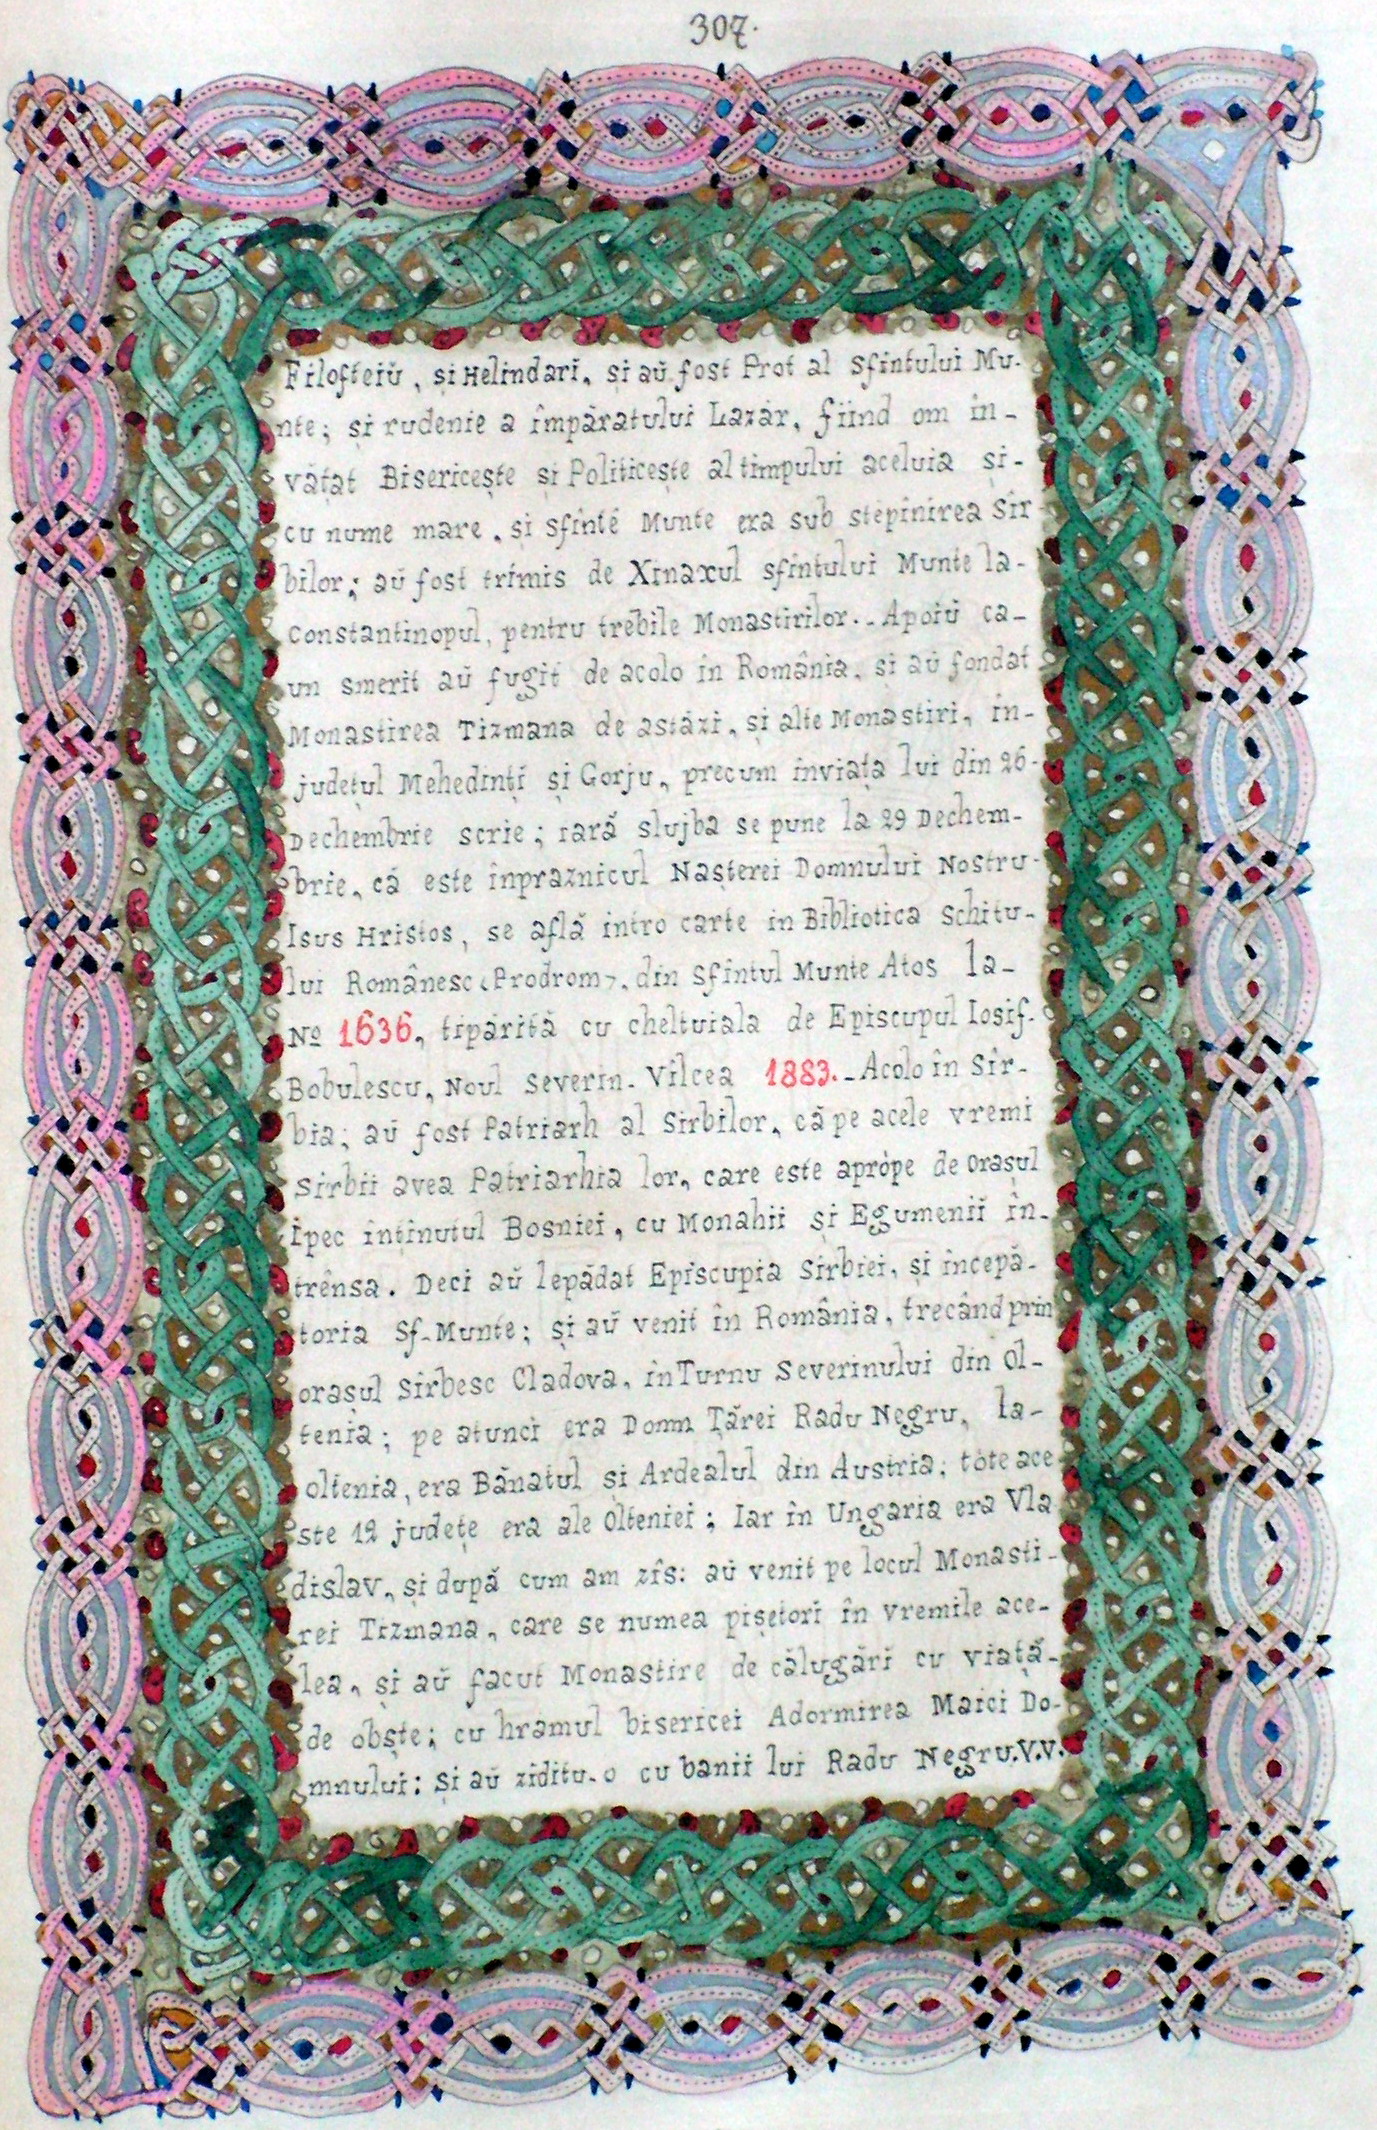 307.
Filofteiŭ, și Helindari, și aŭ fost Prot al sfintului Mu-
nte; și rudenie a împăratului Lazăr, fiind om în-
vățat Bisericește și Politicește al timpului aceluia și-
cu nume mare, și sfintĕ Munte era sub stepînirea Sîr
bilor; aŭ fost trimis de Xinaxul sfintului Munte la-
Constantinopul, pentru trebile Monastirilor.- Apoiŭ ca-
un smerit aŭ fugit de acolo în România, și aŭ fondat
Monastirea Tizmana de astăzi, și alte Monastiri, in-
județul Mehedinți și Gorju, precum inviața lui din 26-
Dechembrie scrie; iară slujba se pune la 29 Dechem-
brie, că este înpraznicul Nașterei Domnului Nostru-
Isus Hristos, se află intro carte in Bibliotica Schitu-
lui Românesc <Prodrom>, din Sfintul Munte Atos la-
No 1636., tipărită cu cheltuiala de Episcupul Iosif-
Bobulescu, Noul Severin- Vîlcea 1883.-Acolo în Sîr-
bia; aŭ fost Patriarh al Sirbilor, că pe acele vremi
Sirbii avea Patriarhia lor, care este aprópe de orașul
Ipec ințînutul Bosniei, cu Monahii și Egumenii în-
trênsa. Deci aŭ lepădat Episcupia Sirbiei, și incepă-
toria Sf-Munte; și aŭ venit în România, trecând prin
orașul Sirbesc Cladova, în Turnu Severinului din Ol-
tenia; pe atunci era Domn Țărei Radu Negru, la-
oltenia, era Bănatul și Ardealul din Austria; tóte ace
ste 12 județe era ale Olteniei; Iar în Ungaria era Vla
dislav, și după cum am zîs: aŭ venit pe locul Monasti-
rei Tizmana, care se numea pișetori în vremile ace-
lea, și aŭ facut Monastire de călugări cu viață-
de obște; cu hramul bisericei Adormirea Maici Do-
mnului; și aŭ ziditu-o cu banii lui Radu Negru.V.V.